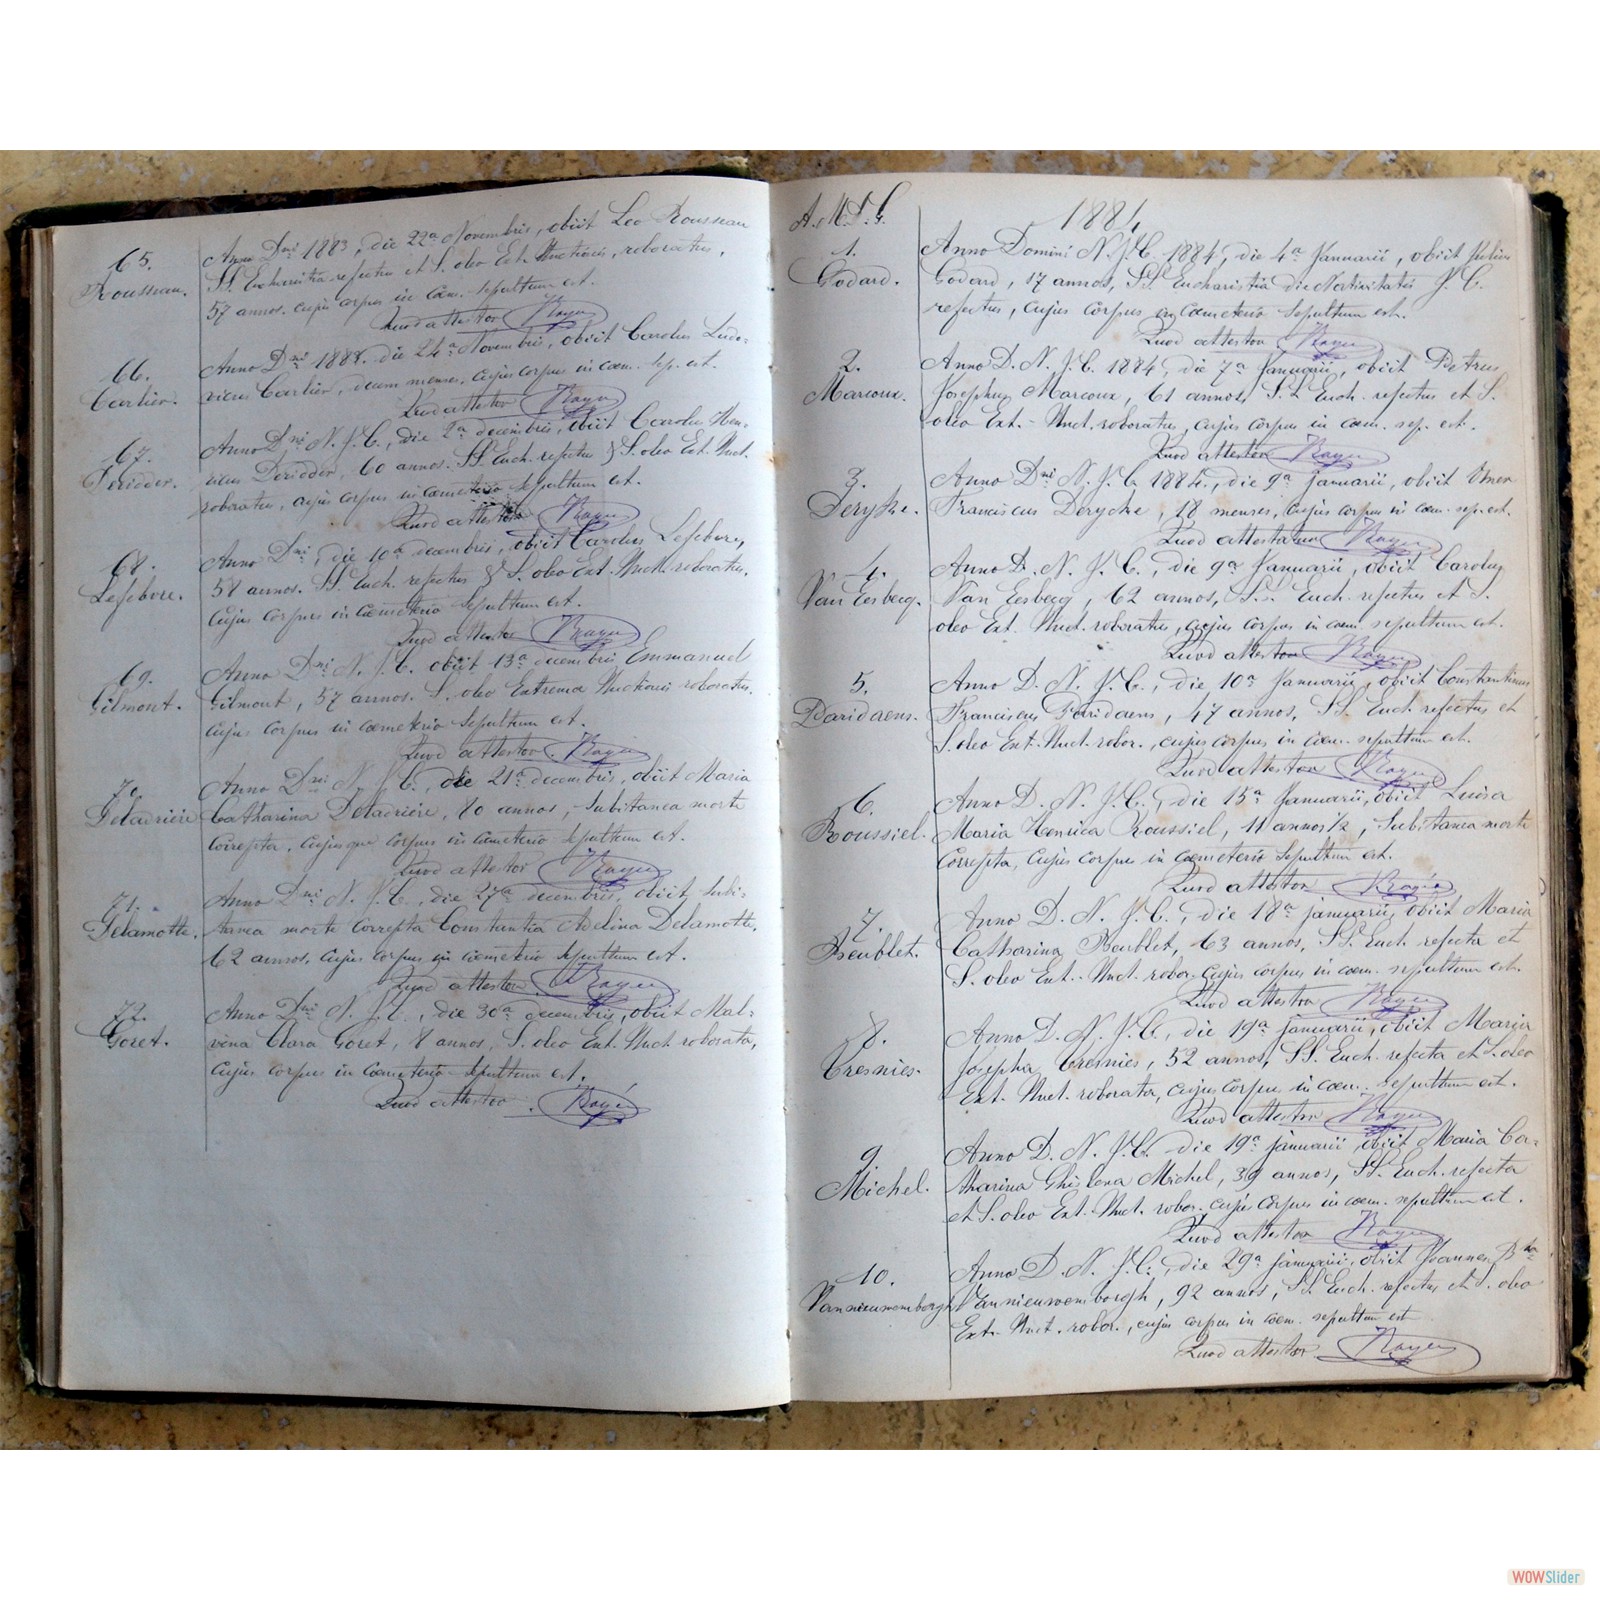 65.
Rousseau.
Anno Dni 1883, die 22a Novembris, obiit Leo Rousseau
SS. Eucharistia refectus et S. oleo Ext. Unctionis, roboratus,
57 annos. cujus corpus in cœm. sepultum est.
Quod attestor
66.
Carlier.
Anno Dni 188 . die 24a Novembris, obiit Carolus Ludo-
vicus Carlier, decem menses, cujus corpus in cœm. sep. est.
Quod attestor
67.
Deridder.
Anno Dni N. J. C., die 2a decembris, obiit Carolus Hen-
ricus Deridder, 60 annos. SS. Euch. refectus & S. oleo Ext. Unct.
roboratus, cujus corpus in cœmeterio sepultum est.
Quod attestor
68.
Lefebvre.
Anno Dni, die 10a decembris, obiit Carolus Lefebvre,
58 annos. SS. Euch. refectus & S. oleo Ext. Unct. roboratus.
Cujus corpus in cœmeterio sepultum est.
Quod attestor
69.
Gilmont.
Anno Dni N. J. C. obiit 13a decembris Emmanuel
Gilmont, 57 annos. S. oleo Extrema Unctionis roboratus.
Cujus corpus in cœmeterio sepultum est.
Quod attestor
70.
Deladrière
Anno Dni N. J. C., die 21a decembris, obiit Maria
Catharina Deladrière, 80 annos, subitanea morte
correpta, cujusque corpus in cœmeterio sepultum est.
Quod attestor
71.
Delamotte.
Anno Dni N. J. C., die 27a decembris, obiit, subi-
tanea morte correpta Constantia Adelina Delamotte,
62 annos, cujus corpus in cœmeterio sepultum est.
Quod attestor
72.
Goret.
Anno Dni N. J. C., die 30a decembris, obiit Mal-
vina Clara Goret, 8 annos, S. oleo Ext. Unct. roborata,
cujus corpus in cœmeterio sepultum est.
Quod attestor
1884
1.
Godard.
Anno Domini N. J. C. 1884, die 4a Januarii, obiit Julius
Godard, 17 annos, SS. Eucharistia die Nativitatis J. C.
refectus, cujus corpus in cœmeterio sepultum est.
Quod attestor
2.
Marcoux.
Anno D. N. J. C. 1884, die 7a Januarii, obiit Petrus
Josephus Marcoux, 61 annos, SS. Euch. refectus et S.
oleo Ext. Unct. roboratus, cujus corpus in cœm. sep. est.
Quod attestor
3.
Derycke.
Anno Dni N. J. C. 1884., die 9a Januarii, obiit Omer
Franciscus Derycke, 18 menses, cujus corpus in cœm. sep. est.
Quod attestor
4.
Van Eesbecq.
Anno D. N. J. C., die 9a Januarii, obiit Carolus
Van Eesbecq, 62 annos, SS. Euch. refectus et S.
oleo Ext. Unct. roboratus, cujus corpus in cœm. sepultum est.
Quod attestor
5.
Daridaens.
Anno D. N. J. C., die 10a Januarii, obiit Constantinus
Franciscus Daridaens, 47 annos, SS. Euch. refectus et
S. oleo Ext. Unct. robor., cujus corpus in cœm. sepultum est.
Quod attestor
6.
Roussiel.
Anno D. N. J. C., die 15a Januarii, obiit Luisa
Maria Henrica Roussiel, 11 annos ½, subitanea morte
correpta, cujus corpus in cœmeterio sepultum est.
Quod attestor
7.
Beublet.
Anno D. N. J. C., die 18a januarii, obiit Maria
Catharina Beublet, 63 annos, SS. Euch. refecta et
S. oleo Ext. Unct. robor. cujus corpus in cœm. sepultum est.
Quod attestor
8.
Cresnies.
Anno D. N. J. C., die 19a januarii, obiit Maria
Josepha Cresnies, 52 annos, SS. Euch. refecta et S. oleo
Ext. Unct. roborata, cujus corpus in cœm. sepultum est.
Quod attestor
9.
Michel.
Anno D. N. J. C. die 19a januarii obiit Maria Ca-
tharina Ghislena Michel, 39 annos, SS. Euch. refecta
et S. oleo Ext. Unct. robor. cujus corpus in cœm. sepultum est.
Quod attestor
10.
Vannieuwenborgh
Anno D. N. J. C., die 29a januarii, obiit Joannes Bta
Vannieuwenborgh, 92 annos, SS. Euch. refectus et S. oleo
Ext. Unct. robor., cujus corpus in cœm. sepultum est
Quod attestor
WOWSlider